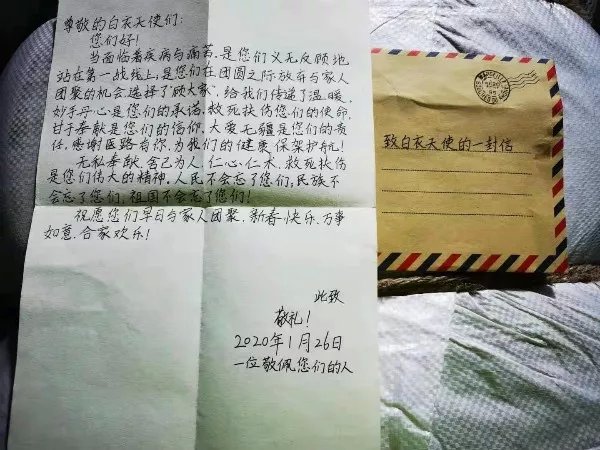 尊敬的白衣天使们:
您们好!
当面临着疾病与痛苦,是您们义无反顾地
站在第一战线上,是您们在团圆之际放弃与家人
团聚的机会选择了“顾大家”,给我们传递了温暖,
妙手丹心是您们的承诺,救死扶伤您们的使命,
甘于奉献是您们的信仰,大爱无疆是您们的责
任,感谢医路有你,为我们的健康保架护航!
无私奉献、舍己为人、仁心、仁术、救死扶伤
是您们伟大的精神,人民不会忘了您们,民族不
会忘了您们,祖国不会忘了您们!
祝愿您们早日与家人团聚、新春快乐、万事
如意、合家欢乐!
此致
敬礼!
2020年1月26日
一位敬佩您们的人
致白衣天使的一封信